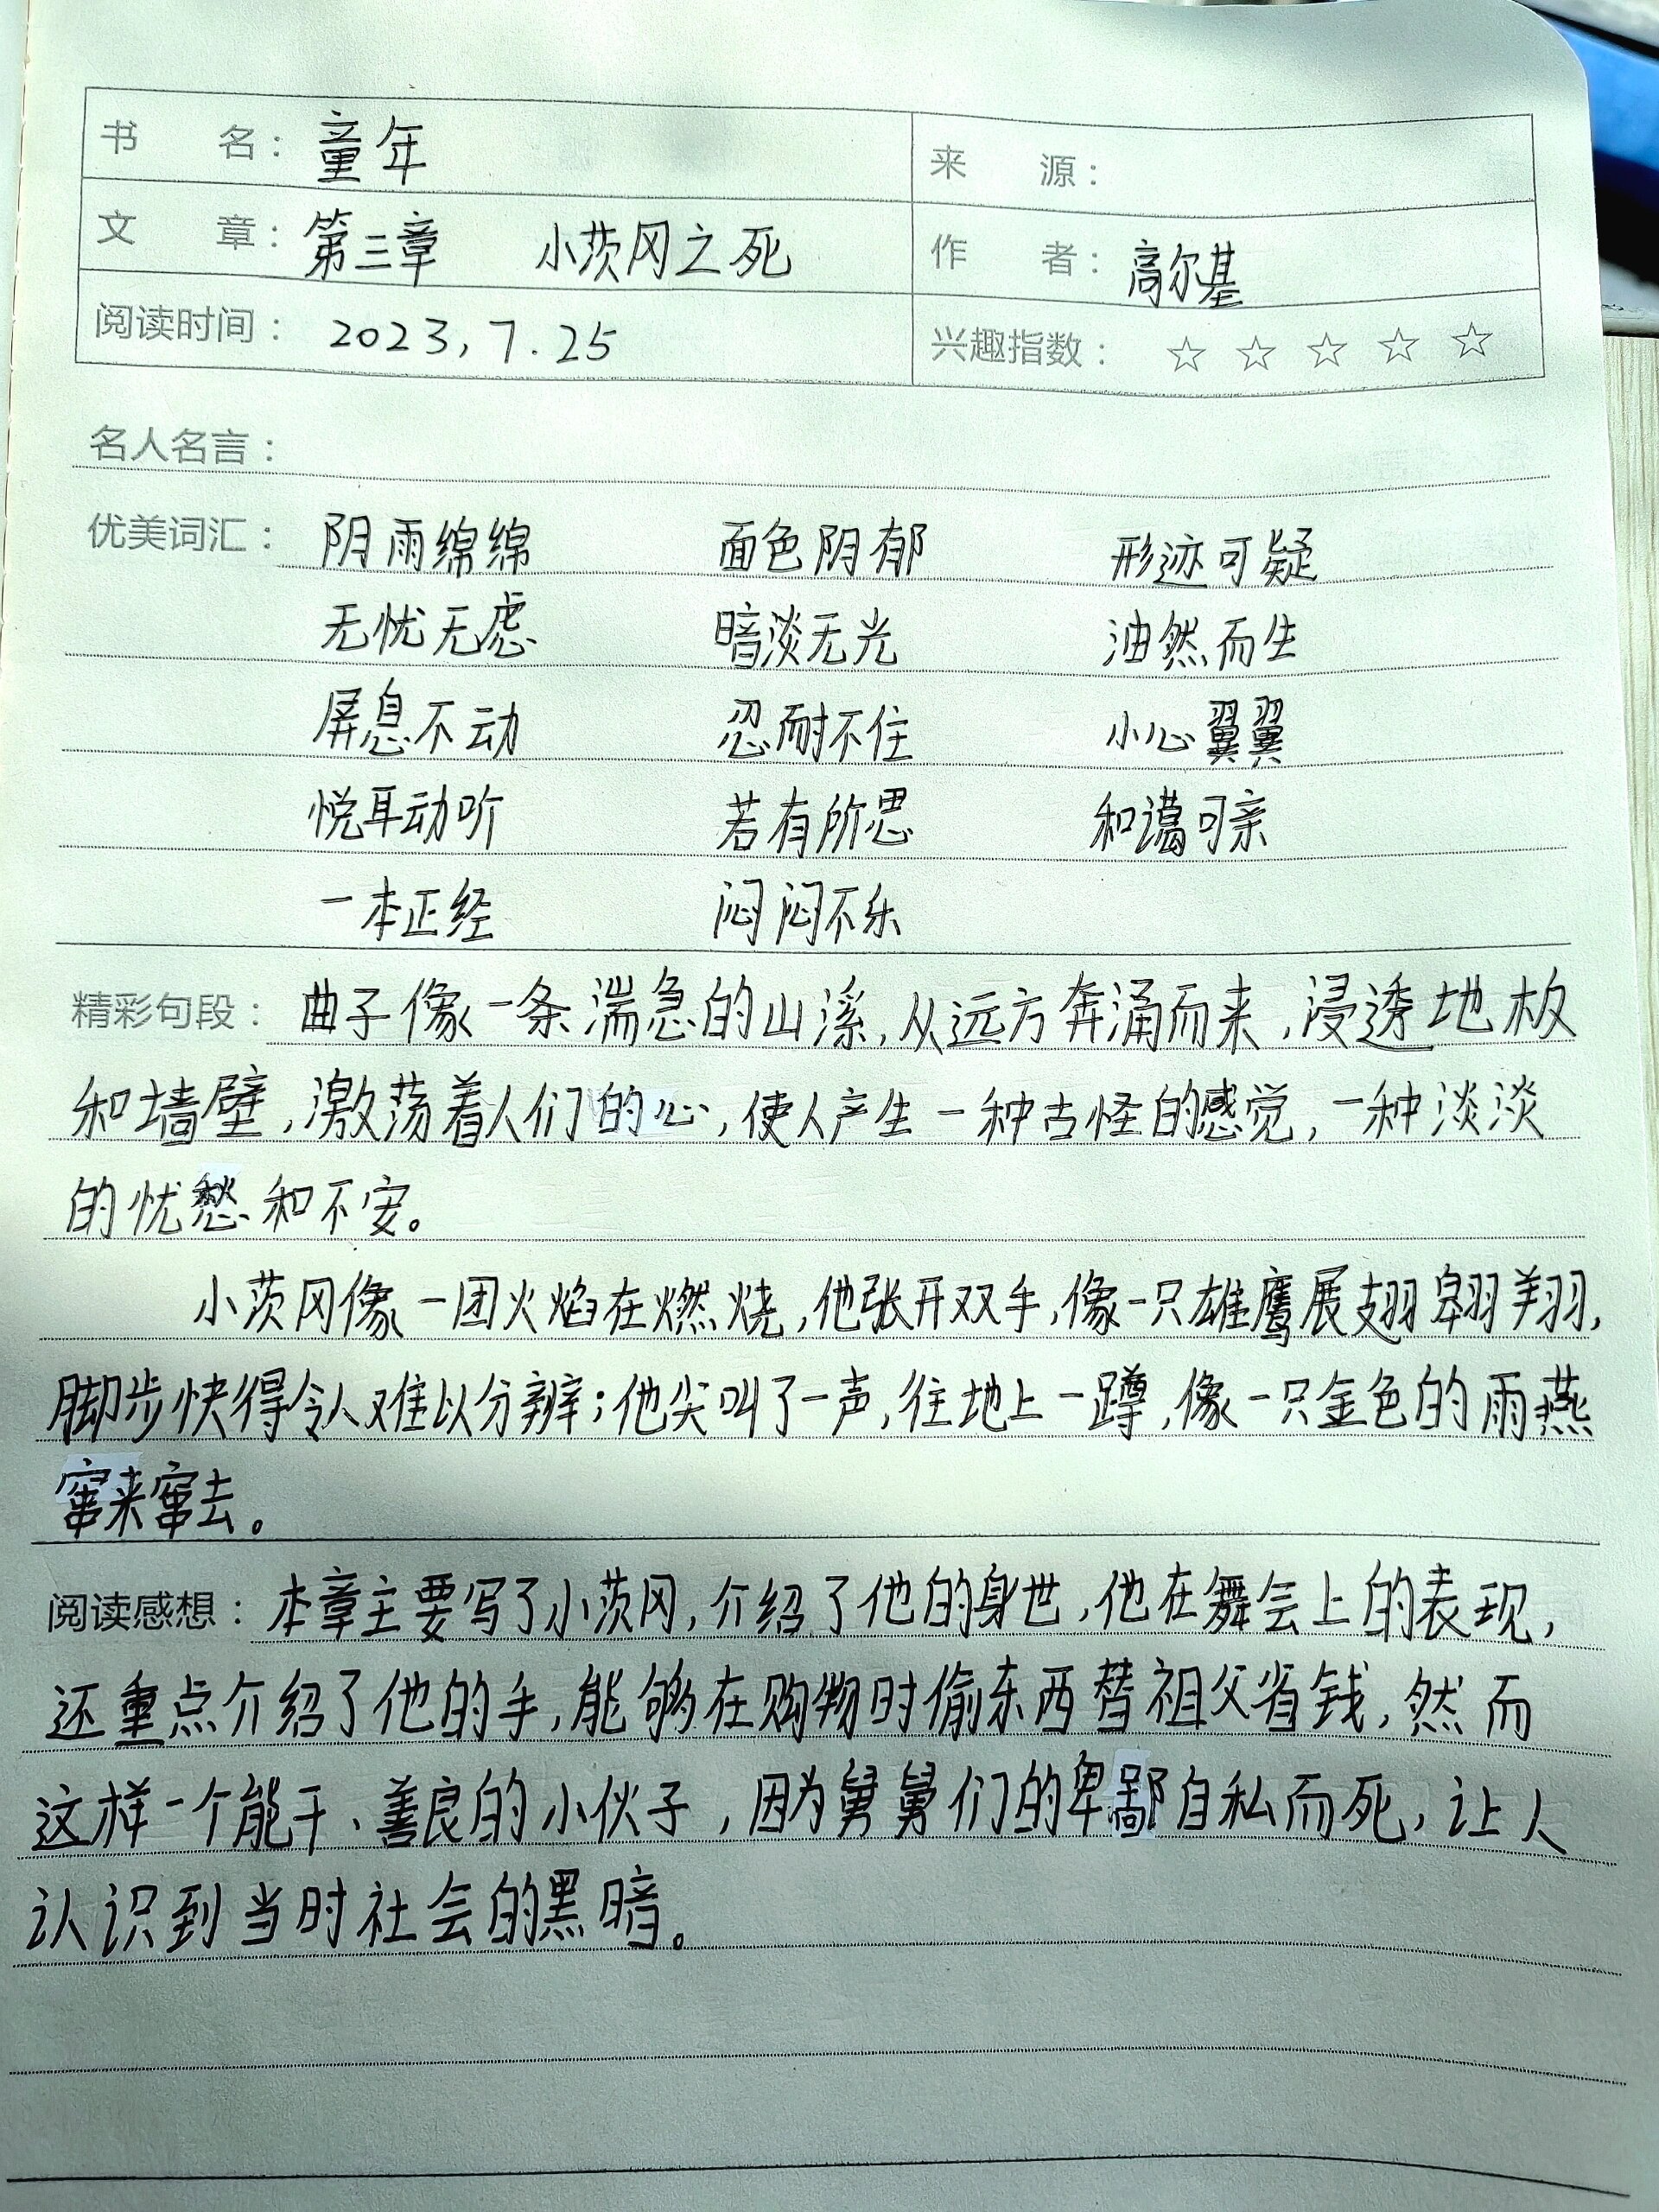 书 名：童年 来 源：
文 章：第三章 小茨冈之死 作 者：高尔基
阅读时间：2023，7.25 兴趣指数：☆ ☆ ☆ ☆ ☆
名人名言：
优美词汇：阴雨绵绵 面色阴郁 形迹可疑
无忧无虑 暗淡无光 油然而生
屏息不动 忍耐不住 小心翼翼
悦耳动听 若有所思 和蔼可亲
一本正经 闷闷不乐
精彩句段：曲子像一条湍急的山溪，从远方奔涌而来，浸透地板
和墙壁，激荡着人们的心，使人产生一种古怪的感觉，一种淡淡
的忧愁和不安。
小茨冈像一团火焰在燃烧，他张开双手，像一只雄鹰展翅翱翔，
脚步快得令人难以分辨；他尖叫了一声，往地上一蹲，像一只金色的雨燕
窜来窜去。
阅读感想：本章主要写了小茨冈，介绍了他的身世，他在舞会上的表现，
还重点介绍了他的手，能够在购物时偷东西替祖父省钱，然而
这样一个能干、善良的小伙子，因为舅舅们的卑鄙自私而死，让人
认识到当时社会的黑暗。